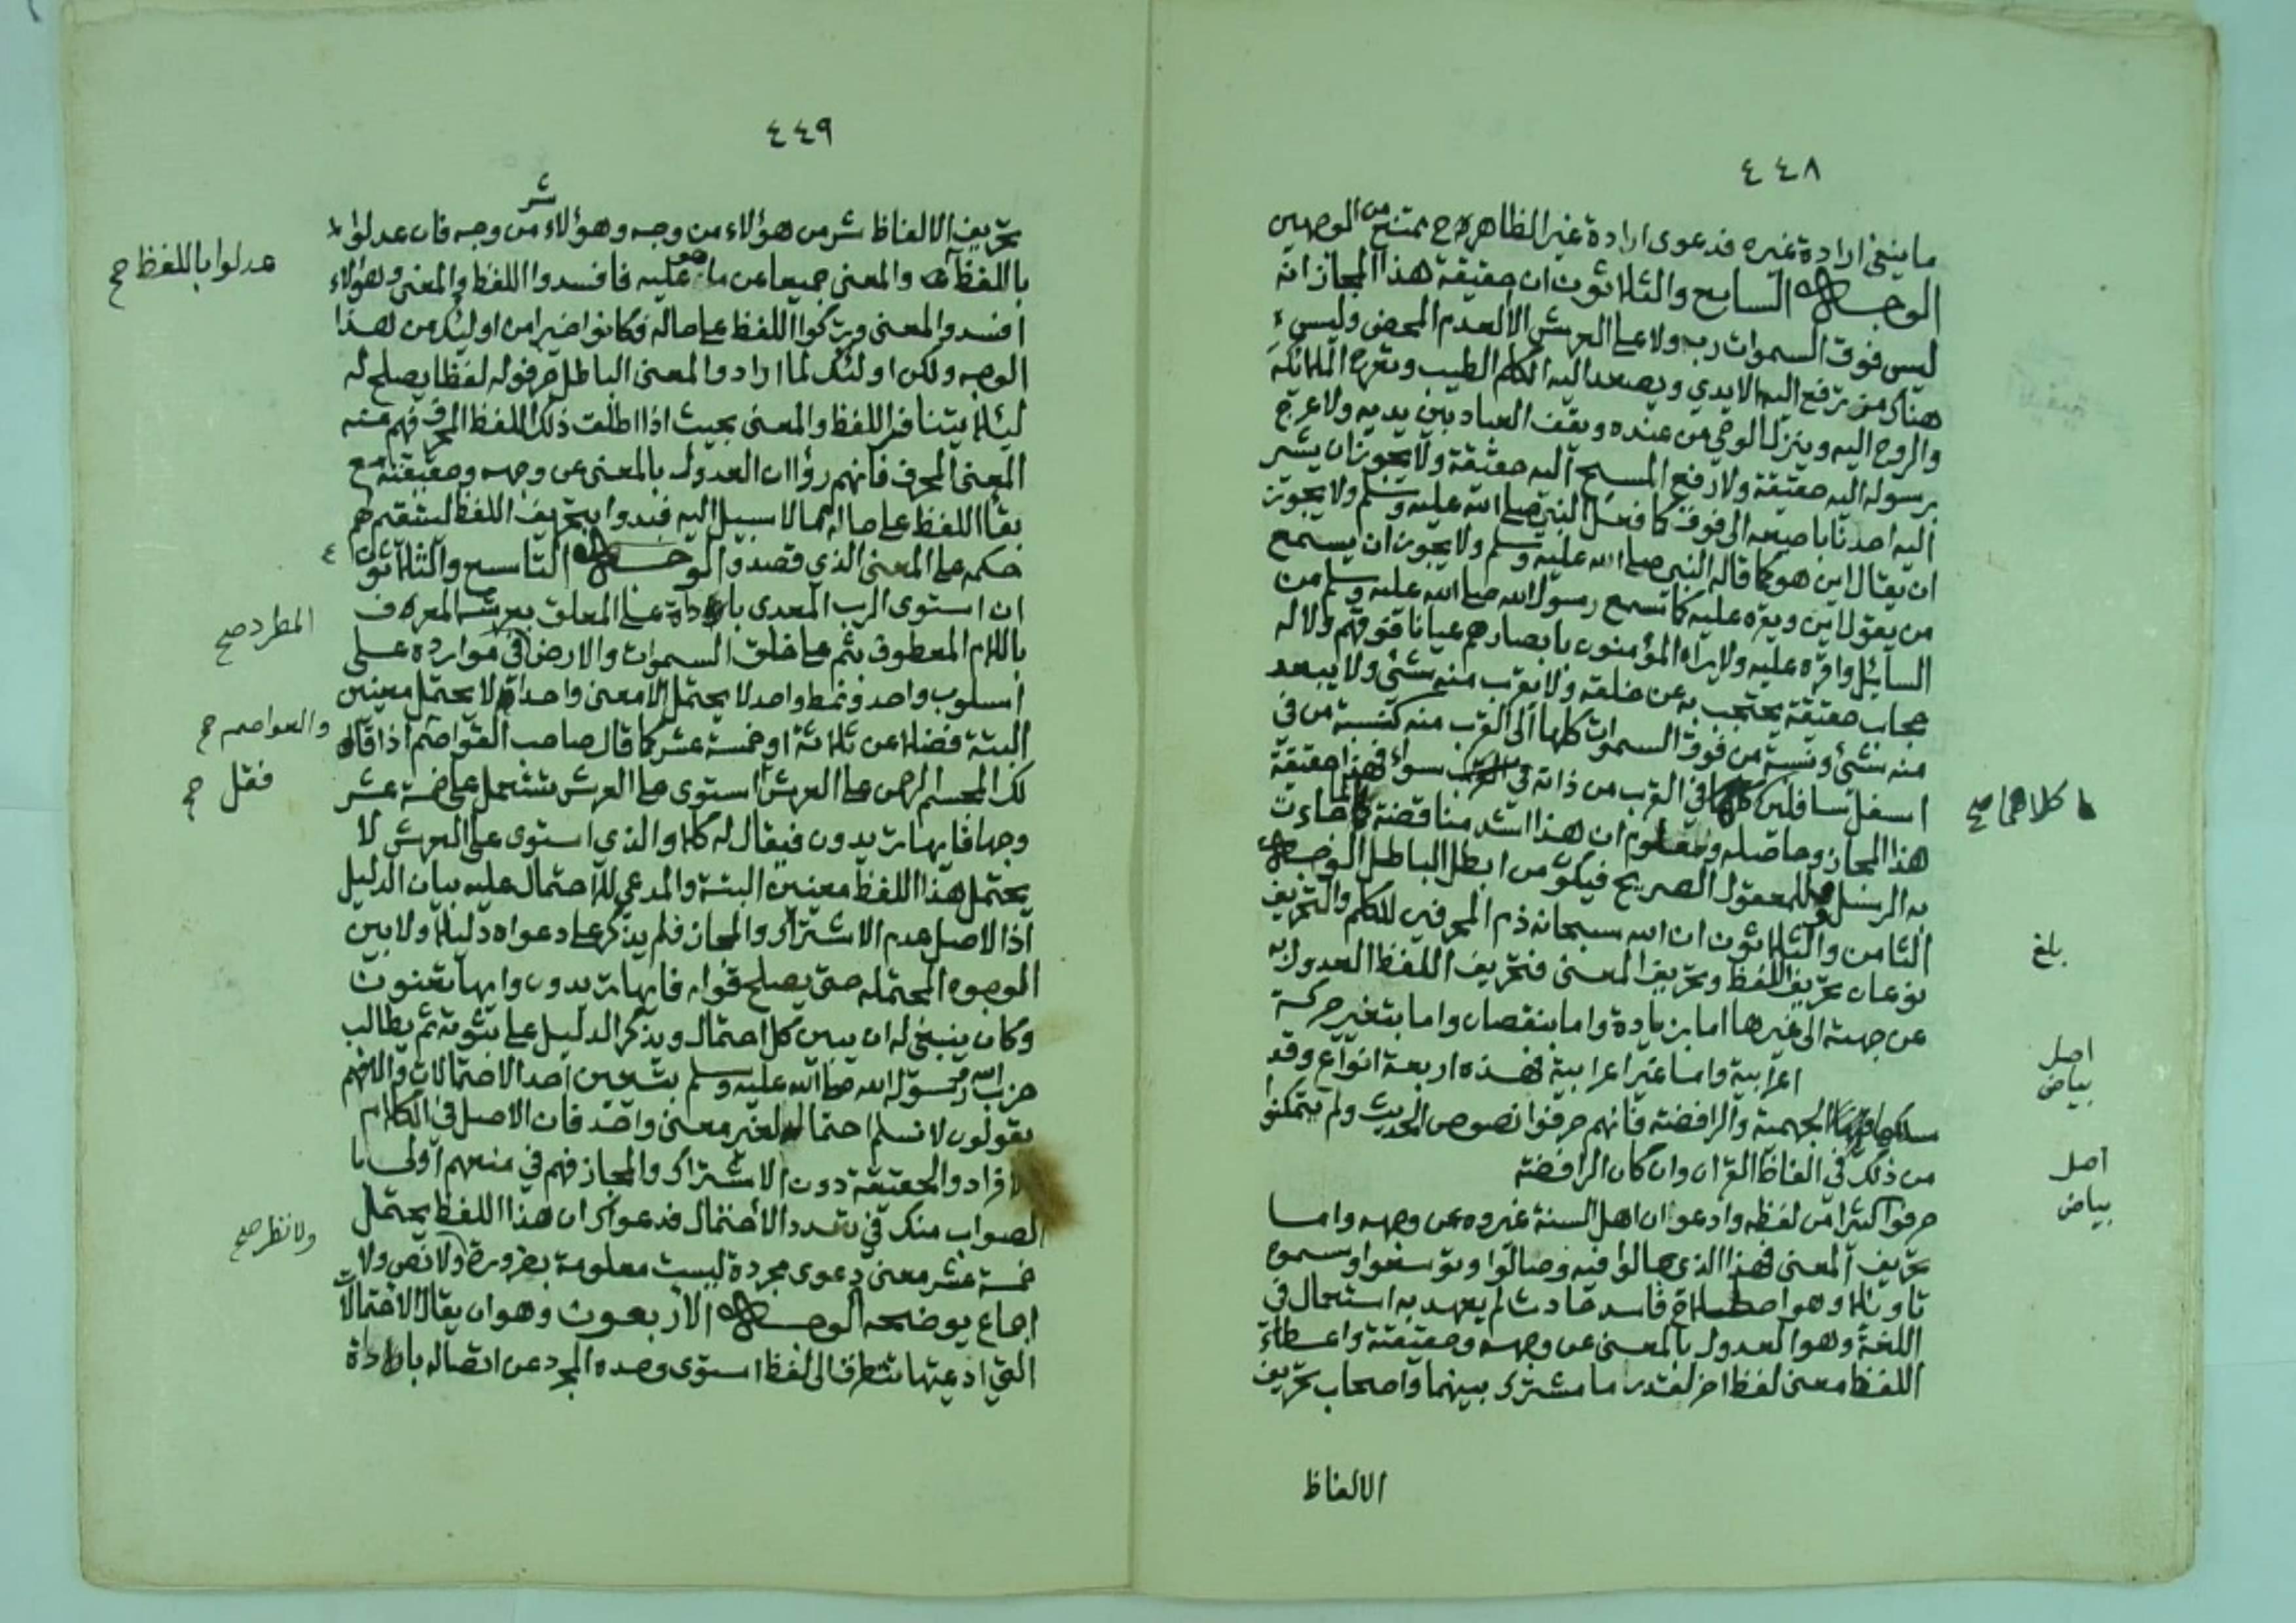 ٤٤٨
ما ينفي ارادة غيره فدعوى ارادة غير الظاهر ح ممتنع من الوجهين
الوجه السابع والثلاثون ان حقيقة هذا المجاز انه
ليس فوق السموات رب ولا على العرش الا العدم المحض وليس
هناك من ترفع اليه الايدي ويصعد اليه الكلم الطيب وتعرج الملائكة
والروح اليه وينزل الوحي من عنده ويقف العباد بين يديه ولا عرج
برسوله اليه حقيقة ولا رفع المسيح اليه حقيقة ولا يجوز ان يشير
اليه احدنا باصبعه الى فوق كما فعل النبي صلى الله عليه وسلم ولا يجوز
ان يقال اين هو كما قاله النبي صلى الله عليه وسلم ولا يجوز ان يستمع
من يقول اين ويقره عليه كما تسمع رسول الله صلى الله عليه وسلم من
السائل واقره عليه ولا يراه المؤمنون بابصارهم عيانا فوقهم ولا له
حجاب حقيقة يحتجب به عن خلقه ولا يقرب منه شئ ولا يبعد
منه شئ ونسبة من فوق السموات كلها الى القرب منه كنسبة من في
اسفل سافلين في القرب من ذاته سواء فهذا حقيقة
هذا المجاز وحاصله ومعلوم ان هذا اشد مناقضة لما جاءت
به الرسل وللمعقول الصريح فيكون من ابطل الباطل الوجه
الثامن والثلاثون ان الله سبحانه ذم المحرفين للكلم والتحريف
نوعان تحريف اللفظ وتحريف المعنى فتحريف اللفظ العدول به
عن جهته الى غيرها اما بزيادة واما بنقصان واما بتغير حركة
اعرابية واما غير اعرابية فهذه اربعة انواع وقد
الجهمية والرافضة فانهم حرفوا نصوص الحديث ولم يتمكنوا
من ذلك في الفاظ القرآن وان كان الرافضة
حرفوا كثيرا من لفظه وادعوا ان اهل السنة غيروه عن وجهه واما
تحريف المعنى فهذا الذي جالوا فيه وصالوا وتوسعوا وسموه
تاويلا وهو اصطلاح فاسد حادث لم يعهد به استعمال في
اللغة وهو العدول بالمعنى عن وجهه وحقيقته واعطاء
اللفظ معنى لفظ اخر لقدر ما مشترك بينهما واصحاب تحريف
الالفاظ
كلاهما صح
بلغ
اصل
بياض
اصل
بياض
٤٤٩
تحريف الالفاظ شر من هؤلاء من وجه وهؤلاء شر من وجه فان عدلوا
باللفظ والمعنى جميعا عن ما هو عليه فافسدوا اللفظ والمعنى وهؤلاء
افسدوا المعنى وتركوا اللفظ على حاله فكانوا خيرا من اولئك من هذا
الوجه ولكن اولئك لما ارادوا المعنى الباطل حرفوله لفظا يصلح له
ليئلا يتنافر اللفظ والمعنى بحيث اذا اطلق ذلك اللفظ المحرف فهم منه
المعنى المحرف فانهم رؤا ان العدول بالمعنى عن وجهه وحقيقته مع
بقاء اللفظ على حاله مما لا سبيل اليه فبدوا بتحريف اللفظ ليستقيم لهم
حكمه على المعنى الذي قصدوا الوجه التاسع والثلاثون
ان استوى الرب المعدى باداة على المعلق بعرشه المعرف
باللام المعطوف بثم على خلق السموات والارض في موارده على
اسلوب واحد ونمط واحد لا يحتمل الا معنى واحدا لا يحتمل معنيين
البتة فضلا عن ثلاثة او خمسة عشر كما قال صاحب القواصم اذا قال
لك المجسم الرحمن على العرش استوى على العرش تشتمل على خمسة عشر
وجها فايها تريدون فيقال له كلا والذي استوى على العرش لا
يحتمل هذا اللفظ معنيين البتة والمدعي للاحتمال عليه بيان الدليل
اذ الاصل عدم الاشتراك والمجاز فلم يذكر على دعواه دليلا ولا بين
الوجوه المحتمله حتى يصلح قوله فايها تريدون وايها تعنون
وكان ينبغي له ان يبين كل احتمال ويذكر الدليل على ثبوته ثم يطالب
حزب الله ورسوله صلى الله عليه وسلم بتعيين احد الاحتمالات والا فهم
يقولون لا نسلم احتماله لغير معنى واحد فان الاصل في الكلام
الافراد والحقيقة دون الاشتراك والمجاز فهم في منعهم اولى با
لصواب منك في تعدد الاحتمال فدعواك ان هذا اللفظ يحتمل
خمسة عشر معنى دعوى مجردة ليست معلومة بضرورة ولا نص ولا
اجماع يوضحه الوجه الاربعون وهو ان يقال الاحتمالات
التي ادعيتها تتطرق الى لفظ استوى وحده المجرد عن اتصاله باداة
عدلوا باللفظ صح
المطرد صح
والعواصم صح
فقل صح
ولا نظر صح